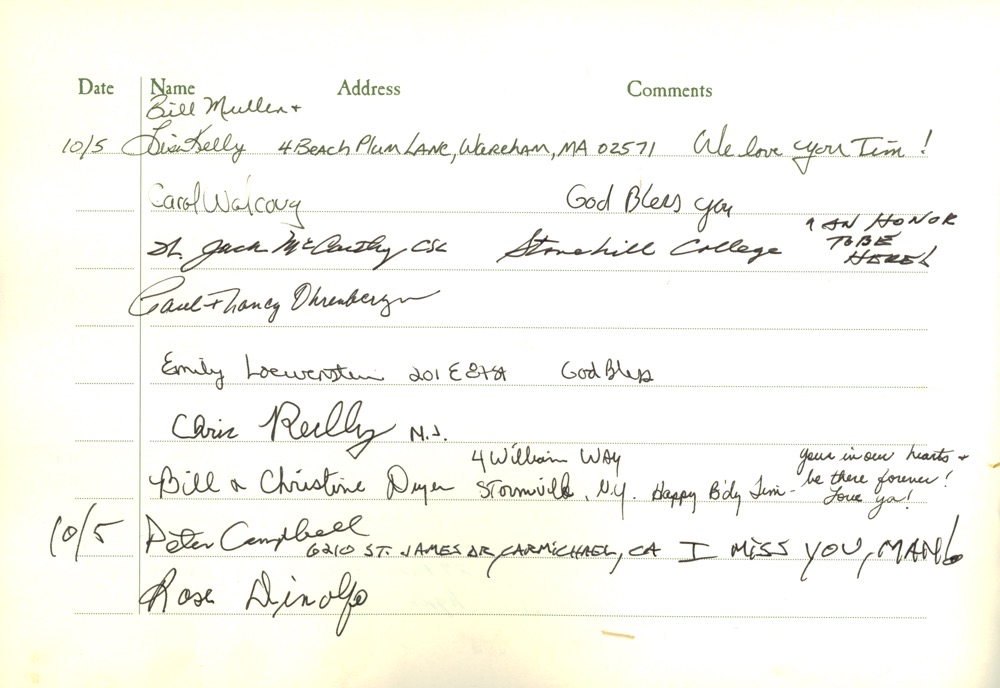 Date Name Address Comments
Bill Mullen +
10/5 Lisa Kelly 4 Beach Plum Lane, Wareham, MA 02571 We love you Tim!
Carol God Bless you
Jack McCarthy, CSC Stonehill College AN HONOR
TO BE
HERE!
Paul + Nancy Ohrenberger
Emily Loewenstein 201 E 87 St God Bless
Chris Reilly N.J.
Bill & Christine Dyer 4 William Way
Stormville, N.Y. Happy B'dy Tim - your in our hearts +
be there forever!
Love ya!
10/5 Peter Campbell
6210 ST. JAMES DR, CARMICHAEL, CA I MISS YOU, MAN!
Rose Dinolfo